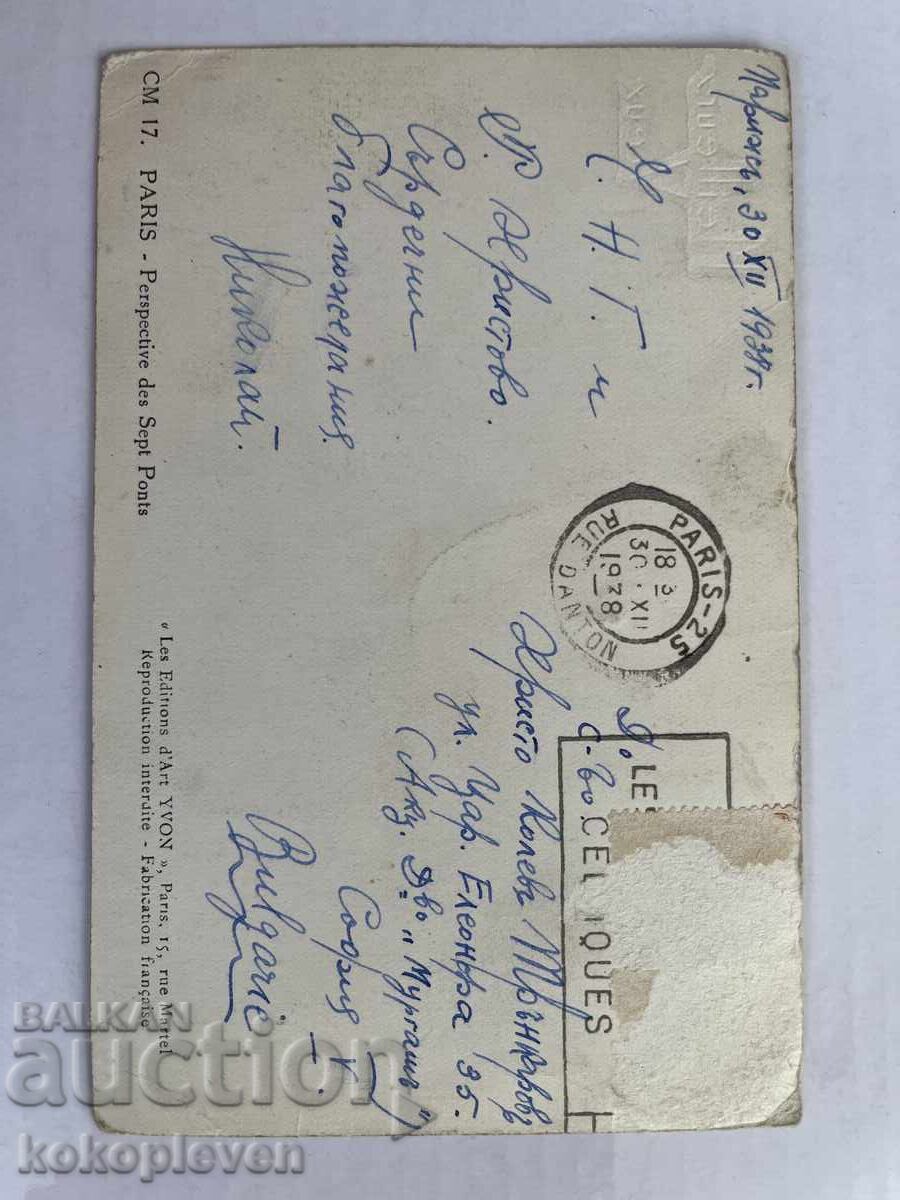 Парижъ, 30 XII 1938 г.
Ч. Н. Г. и
Р. Христово.
Сърдечни
благопожелания
Николай.
PARIS-25
18 3
30 XII
1938
RUE DANTON
LE
CEL IQUES
Д.
С-во
Христо Колевъ Трънкаровъ
ул. Цар. Елеонора 35.
(Акц. Д-во „Мургашъ“)
София
Bulgarie
CM 17. PARIS - Perspective des Sept Ponts
« Les Editions d'Art YVON », Paris, 15, rue Martel
Reproduction interdite - Fabrication française
BALKAN
auction
kokopleven